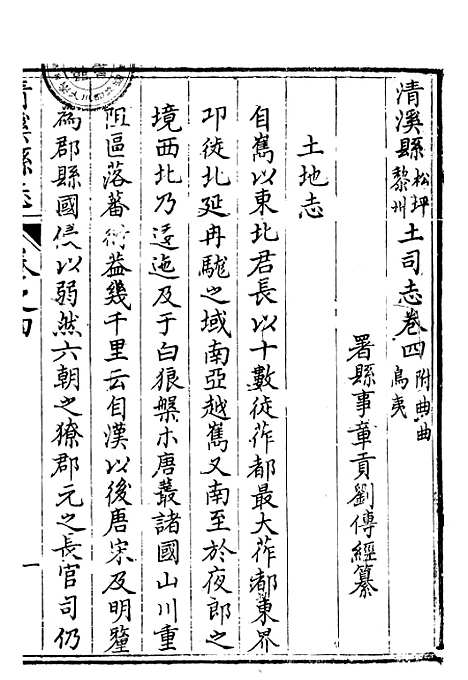 清溪縣松坪黎州土司志卷四附曲曲烏夷
署縣事章貢劉傳經纂
土地志
自嶲以東北君長以十數徙莋都最大莋都東界
邛徙北延冉駹之域南亞越嶲又南至於夜郎之
境西北乃逶迤及于白狼槃木唐叢諸國山川重
阻區落蕃衍葢幾千里云自漢以後唐宋及明釐
為郡縣國侵以弱然六朝之獠郡元之長官司仍
清溪縣志
卷之四
一